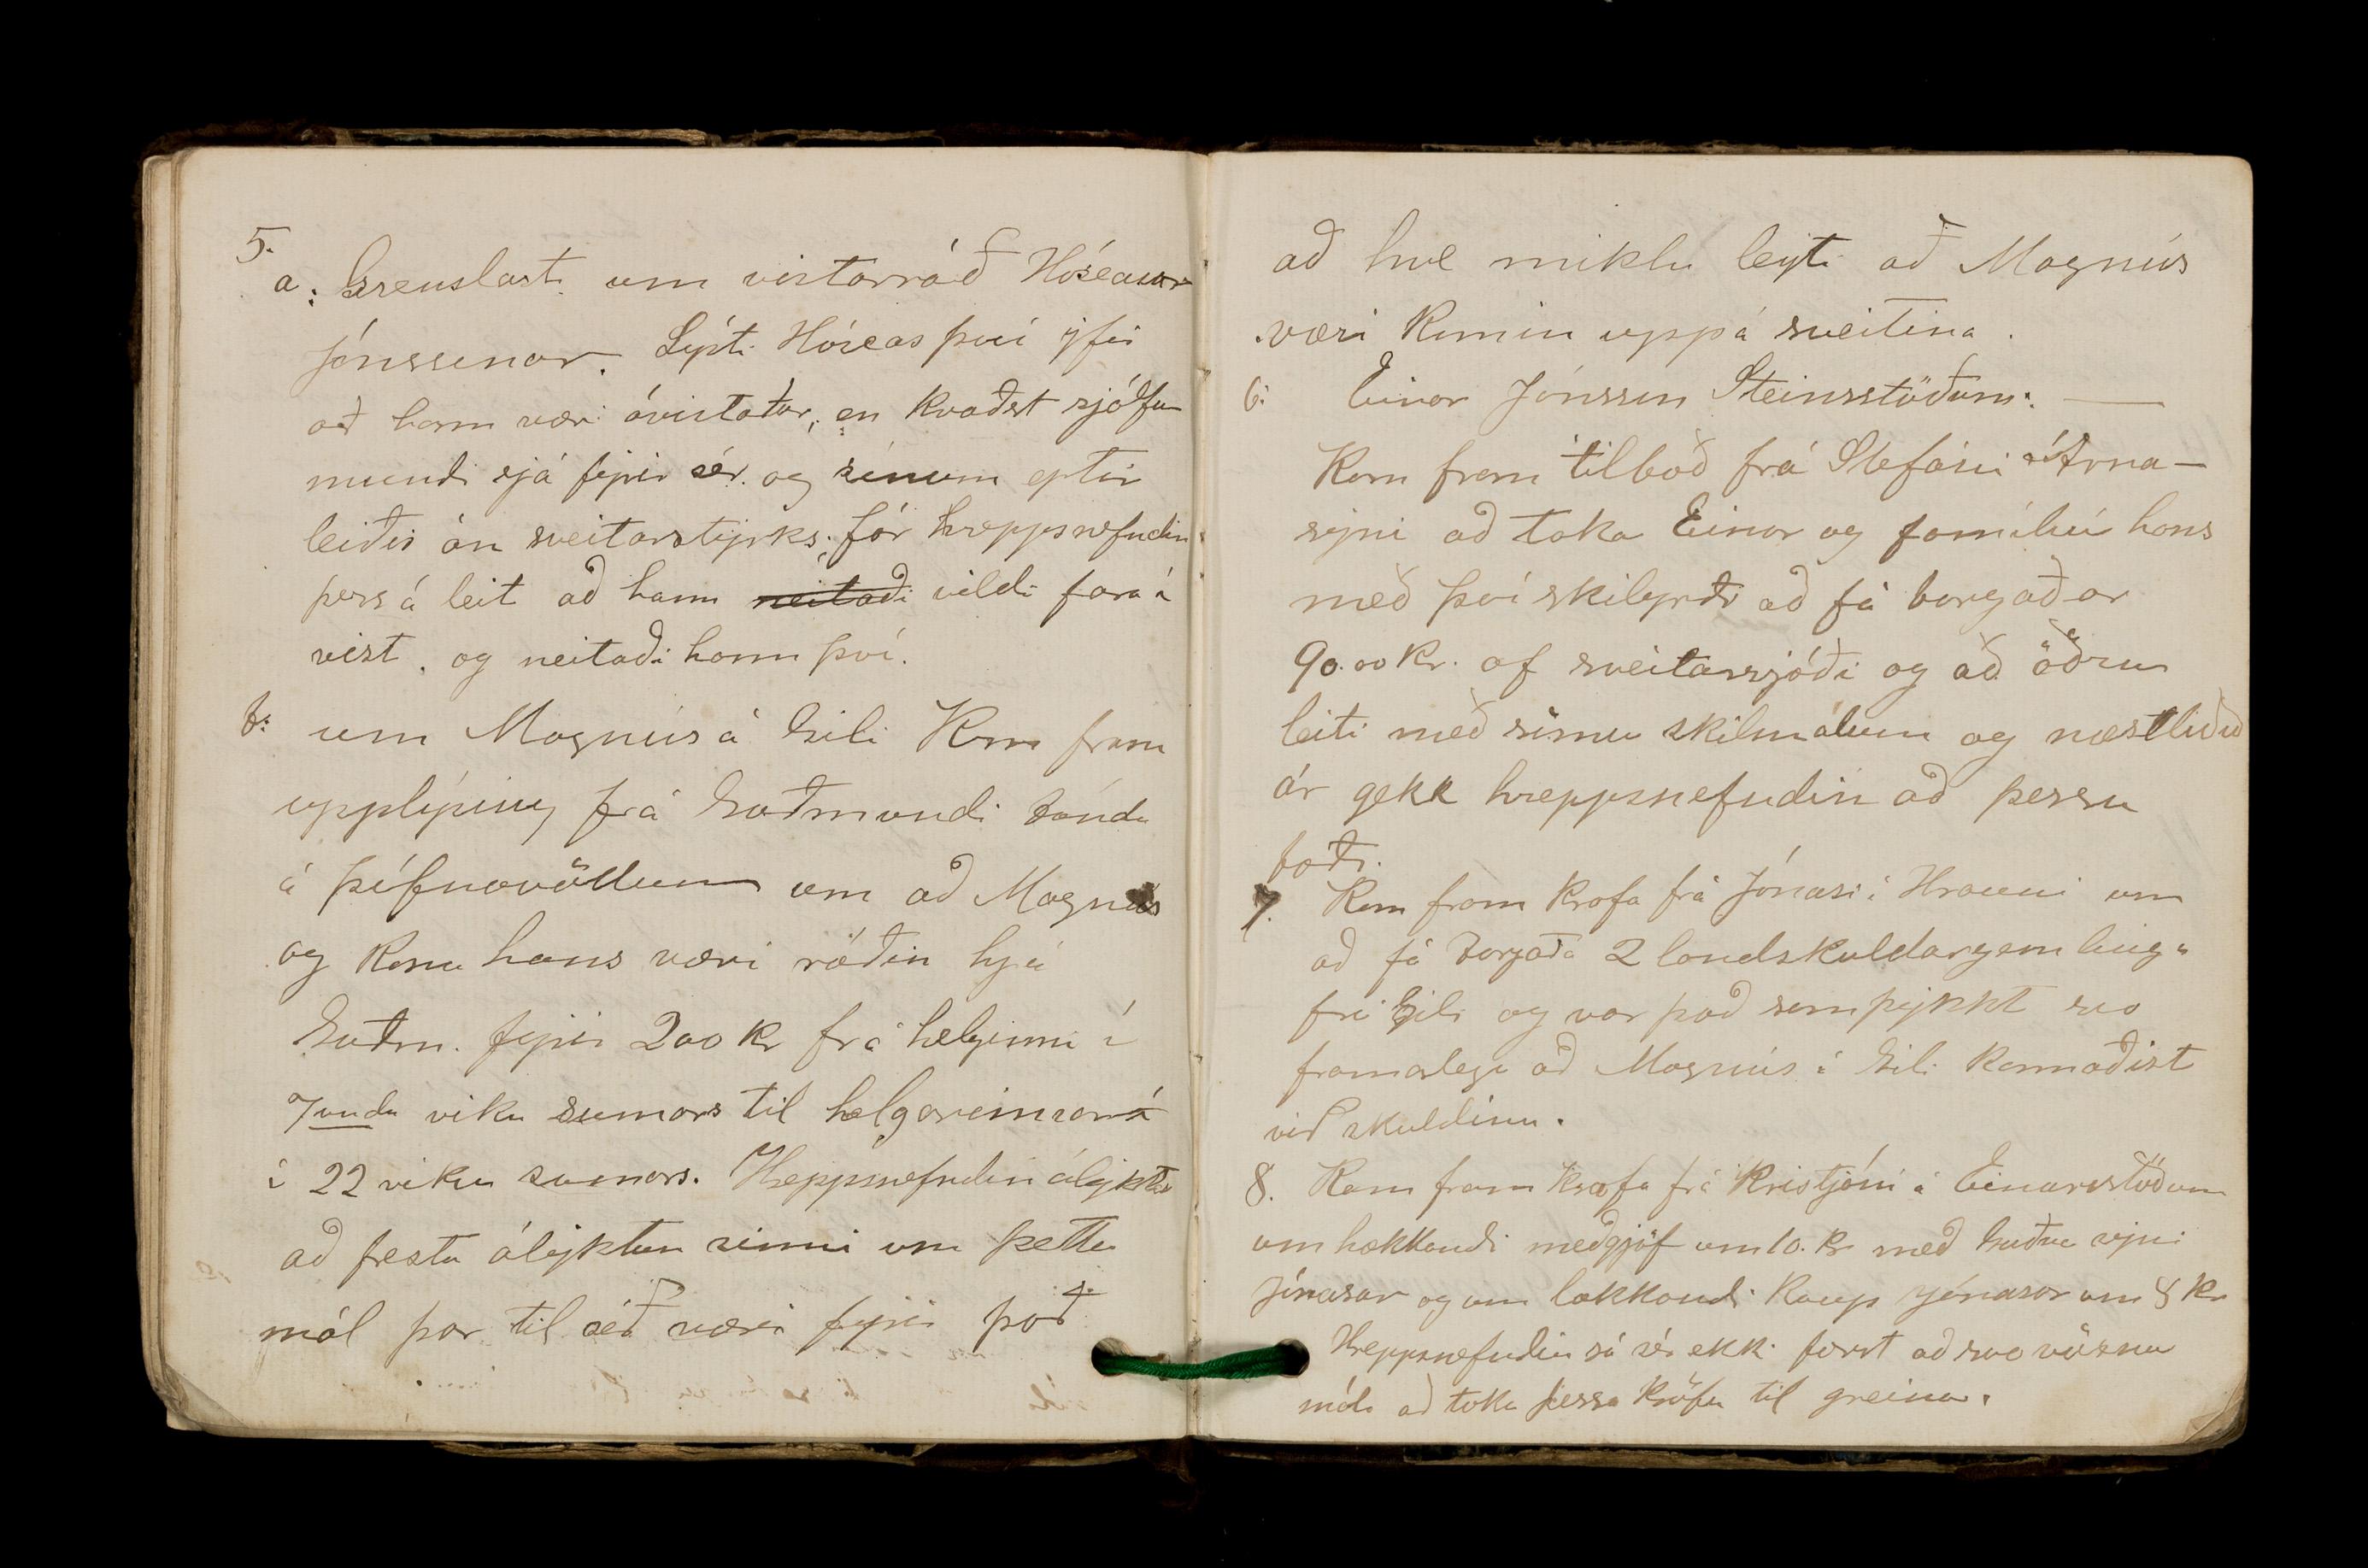 5.
a: Grenslast um vistarráð Hóseasar
Jónssonar. Lýsti Hóseas því yfir
að hann væri óvistaður, en kvaðst sjálfur
mundi sjá fyrir sér og sínum eptir
leiðis án sveitarstyrks; fór hreppsnefndin
þess á leit að hann neitaði vildi fara í
vist, og neitaði hann því.
b: um Magnús á Gili Kom fram
upplýsing frá Guðmundi bónda
á Þúfnavöllum um að Magnús
og kona hans væri ráðin hjá
Guðm. fyrir 200 kr frá helginni í
7undu viku sumars til helgarinnar
í 22 viku sumars. Hreppsnefndin ályktar
að fresta ályktun sinni um þetta
mál þar til séð væri fyrir það
að hve miklu leyti að Magnús
væri komin uppá sveitina.
6: Einar Jónsson Steinsstöðum: —
Kom fram tilboð frá Stefáni Árna-
syni að taka Einar og familíu hans
með því skilyrði að fá borgaðar
90.00 kr. af sveitarsjóði og að öðru
leiti með sömu skilmálum og næstliðið
ár gekk hreppsnefndin að þessu
boði.
7. Kom fram krafa frá Jónasi í Hrauni um
að fá borgaða 2 landskuldargemlinga
frá Gili og var það samþykkt svo
framarlega að Magnús í Gili kannaðist
við skuldina.
8. Kom fram krafa frá Kristjáni á Einarsstöðum
um hækkandi meðgjöf um 10. kr með syni
Jónasar og um lækkandi kaup Jónasar um 8 kr
Hreppsnefndin sá sér ekki fært að svo vöxnu
máli að taka þessa kröfu til greina.